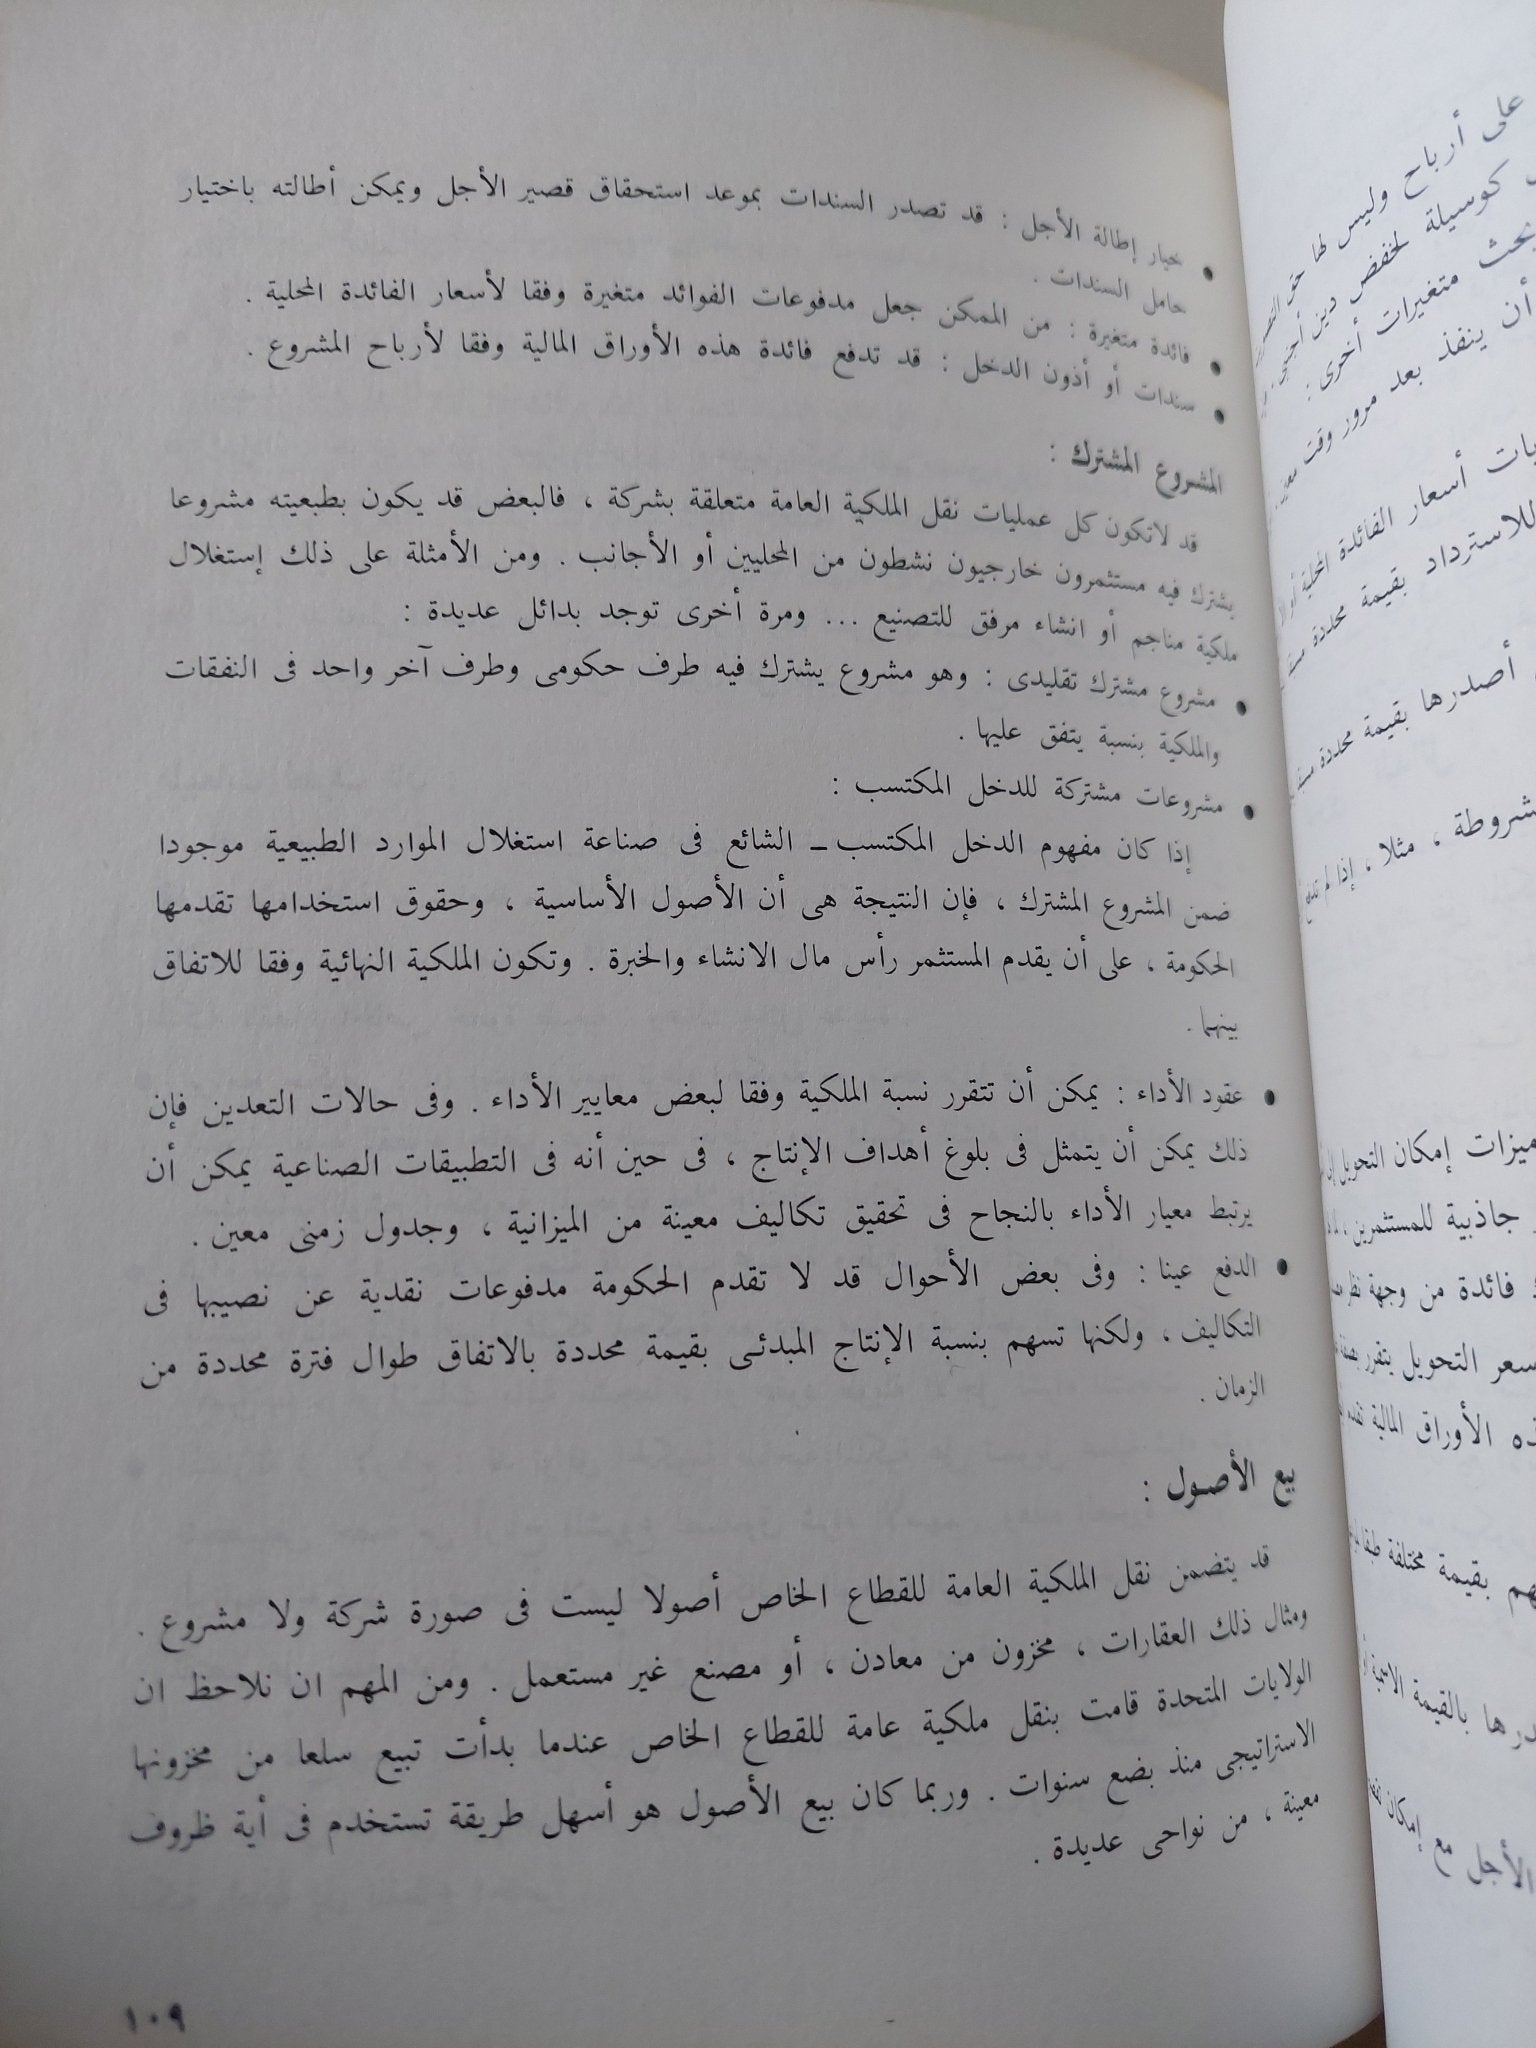 • خيار إطالة الأجل : قد تصدر السندات بموعد استحقاق قصير الأجل ويمكن أطالته باختيار
حامل السندات .
• فائدة متغيرة : من الممكن جعل مدفوعات الفوائد متغيرة وفقا لأسعار الفائدة المحلية .
• سندات أو أذون الدخل : قد تدفع فائدة هذه الأوراق المالية وفقا لأرباح المشروع .
المشروع المشترك :
قد لاتكون كل عمليات نقل الملكية العامة متعلقة بشركة ، فالبعض قد يكون بطبيعته مشروعا
يشترك فيه مستثمرون خارجيون نشطون من المحليين أو الأجانب . ومن الأمثلة على ذلك إستغلال
ملكية مناجم أو انشاء مرفق للتصنيع ... ومرة أخرى توجد بدائل عديدة :
• مشروع مشترك تقليدى : وهو مشروع يشترك فيه طرف حكومى وطرف آخر واحد فى النفقات
والملكية بنسبة يتفق عليها .
• مشروعات مشتركة للدخل المكتسب :
إذا كان مفهوم الدخل المكتسب ــ الشائع فى صناعة استغلال الموارد الطبيعية موجودا
ضمن المشروع المشترك ، فإن النتيجة هى أن الأصول الأساسية ، وحقوق استخدامها تقدمها
الحكومة ، على أن يقدم المستثمر رأس مال الانشاء والخبرة . وتكون الملكية النهائية وفقا للاتفاق
بينهما .
• عقود الأداء : يمكن أن تتقرر نسبة الملكية وفقا لبعض معايير الأداء . وفى حالات التعدين فإن
ذلك يمكن أن يتمثل فى بلوغ أهداف الإنتاج ، فى حين أنه فى التطبيقات الصناعية يمكن أن
يرتبط معيار الأداء بالنجاح فى تحقيق تكاليف معينة من الميزانية ، وجدول زمنى معين .
• الدفع عينا : وفى بعض الأحوال قد لا تقدم الحكومة مدفوعات نقدية عن نصيبها فى
التكاليف ، ولكنها تسهم بنسبة الإنتاج المبدئى بقيمة محددة بالاتفاق طوال فترة محددة من
الزمان .
بيع الأصول :
قد يتضمن نقل الملكية العامة للقطاع الخاص أصولا ليست فى صورة شركة ولا مشروع .
ومثال ذلك العقارات ، مخزون من معادن ، أو مصنع غير مستعمل . ومن المهم ان نلاحظ ان
الولايات المتحدة قامت بنقل ملكية عامة للقطاع الخاص عندما بدأت تبيع سلعا من مخزونها
الاستراتيجى منذ بضع سنوات . وربما كان بيع الأصول هو أسهل طريقة تستخدم فى أية ظروف
معينة ، من نواحى عديدة .
١٠٩
على أرباح وليس لها حق
كوسيلة لخفض دين أجنبى
متغيرات أخرى :
أن ينفذ بعد مرور وقت
أسعار الفائدة المحلية أو
للاسترداد بقيمة محددة
أصدرها بقيمة محددة
مشروطة ، مثلا ، إذا لم
ميزات إمكان التحويل
جاذبية للمستثمرين ،
فائدة من وجهة نظر
سعر التحويل يتقرر
الأوراق المالية
بقيمة مختلفة
بالقيمة
الأجل مع إمكان